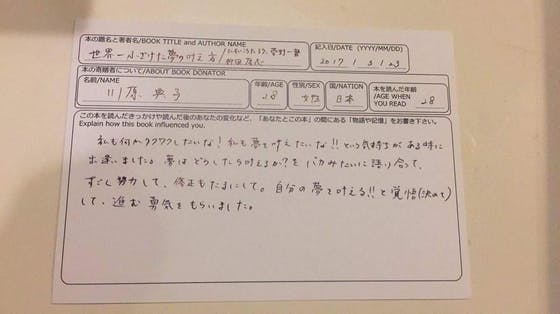 本の題名と著者名/BOOK TITLE and AUTHOR NAME
世界一ふざけた夢の叶え方/ひすいこたろう、菅野一勢 柳田厚志
記入日/DATE (YYYY/MM/DD)
2017 / 3 / 23
本の寄贈者について/ABOUT BOOK DONATOR
名前/NAME
川原 典子
年齢/AGE
28
性別/SEX
女性
国/NATION
日本
本を読んだ年齢/AGE WHEN YOU READ
28
この本を読んだきっかけや読んだ後のあなたの変化など、「あなたとこの本」の間にある「物語や記憶」をお書き下さい。
Explain how this book influenced you.
私も何かワクワクしたいな!私も夢を叶えたいな!!という気持ちがある時に
出逢いました。夢はどうしたら叶えるか?をバカみたいに語り合って、
すごし努力して、修正もたまにして。自分の夢を叶える!!と覚悟(決めて)
して、進む勇気をもらいました。